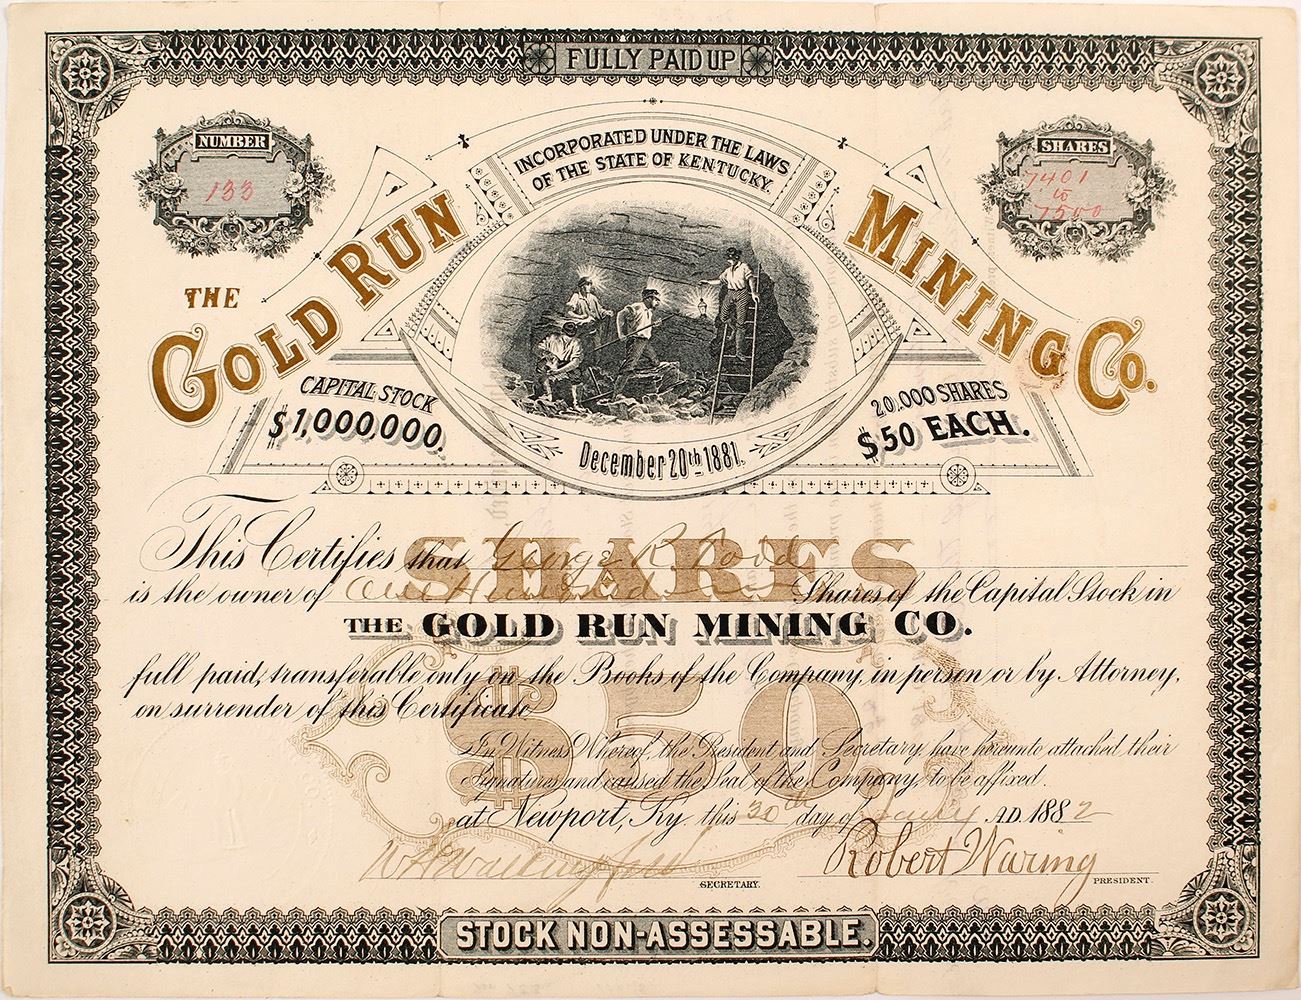 FULLY PAID UP
NUMBER
133
SHARES
7401
to
7500
INCORPORATED UNDER THE LAWS
OF THE STATE OF KENTUCKY.
THE
GOLD RUN MINING Co.
CAPITAL STOCK
$1,000,000.
20,000 SHARES
$50 EACH.
December 20th 1881.
SHARES
This Certifies that George R. Todd
is the owner of One Hundred Shares of the Capital Stock in
THE GOLD RUN MINING CO.
full paid, transferable only on the Books of the Company, in person or by Attorney,
on surrender of this Certificate
$50.
In Witness Whereof, the President and Secretary have hereunto attached their
Signatures and caused the Seal of the Company, to be affixed.
at Newport, Ky. this 30th day of A.D. 1882
Robert Waring
SECRETARY.
PRESIDENT.
STOCK NON-ASSESSABLE.